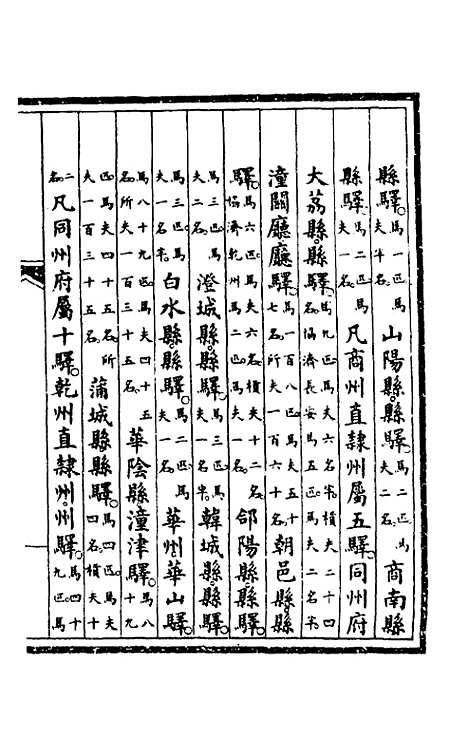 縣驛馬一匹馬夫半名山陽縣縣驛馬二匹馬夫二名商南縣
縣驛馬二匹馬夫一名凡商州直隸州屬五驛同州府
大荔縣縣驛馬九匹馬夫六名半槓夫二十四名協濟長安馬五匹馬夫二名半
潼關廳廳驛馬一百八匹馬夫五十七名所夫一百六十名朝邑縣縣
驛馬六匹馬夫六名槓夫十二名協濟乾州馬二匹馬夫一名郃陽縣縣驛
馬三匹馬夫二名澄城縣縣驛馬三匹馬夫一名半韓城縣縣驛
馬三匹馬夫一名半白水縣縣驛馬二匹馬夫一名華州華山驛
馬八十九匹馬夫四十五名所夫一百三十五名華陰縣潼津驛馬八十九
匹馬夫四十五名所夫一百三十五名蒲城縣縣驛馬四匹馬夫四名槓夫十
二名凡同州府屬十驛乾州直隸州州驛馬四十九匹馬